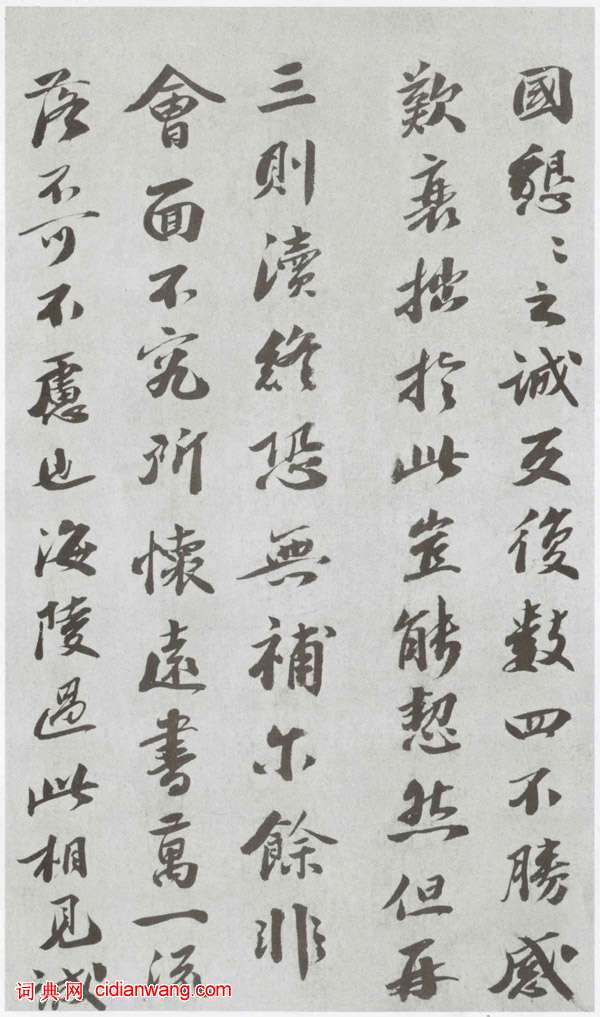 國懇〻之誠反復數四不勝感
歎衰拙於此豈能恝然但再
三則瀆終恐無補尔餘非
會面不究所懷遠書萬一流
落不可不慮也海陵過此相見誠
词典网 cidianwang.com